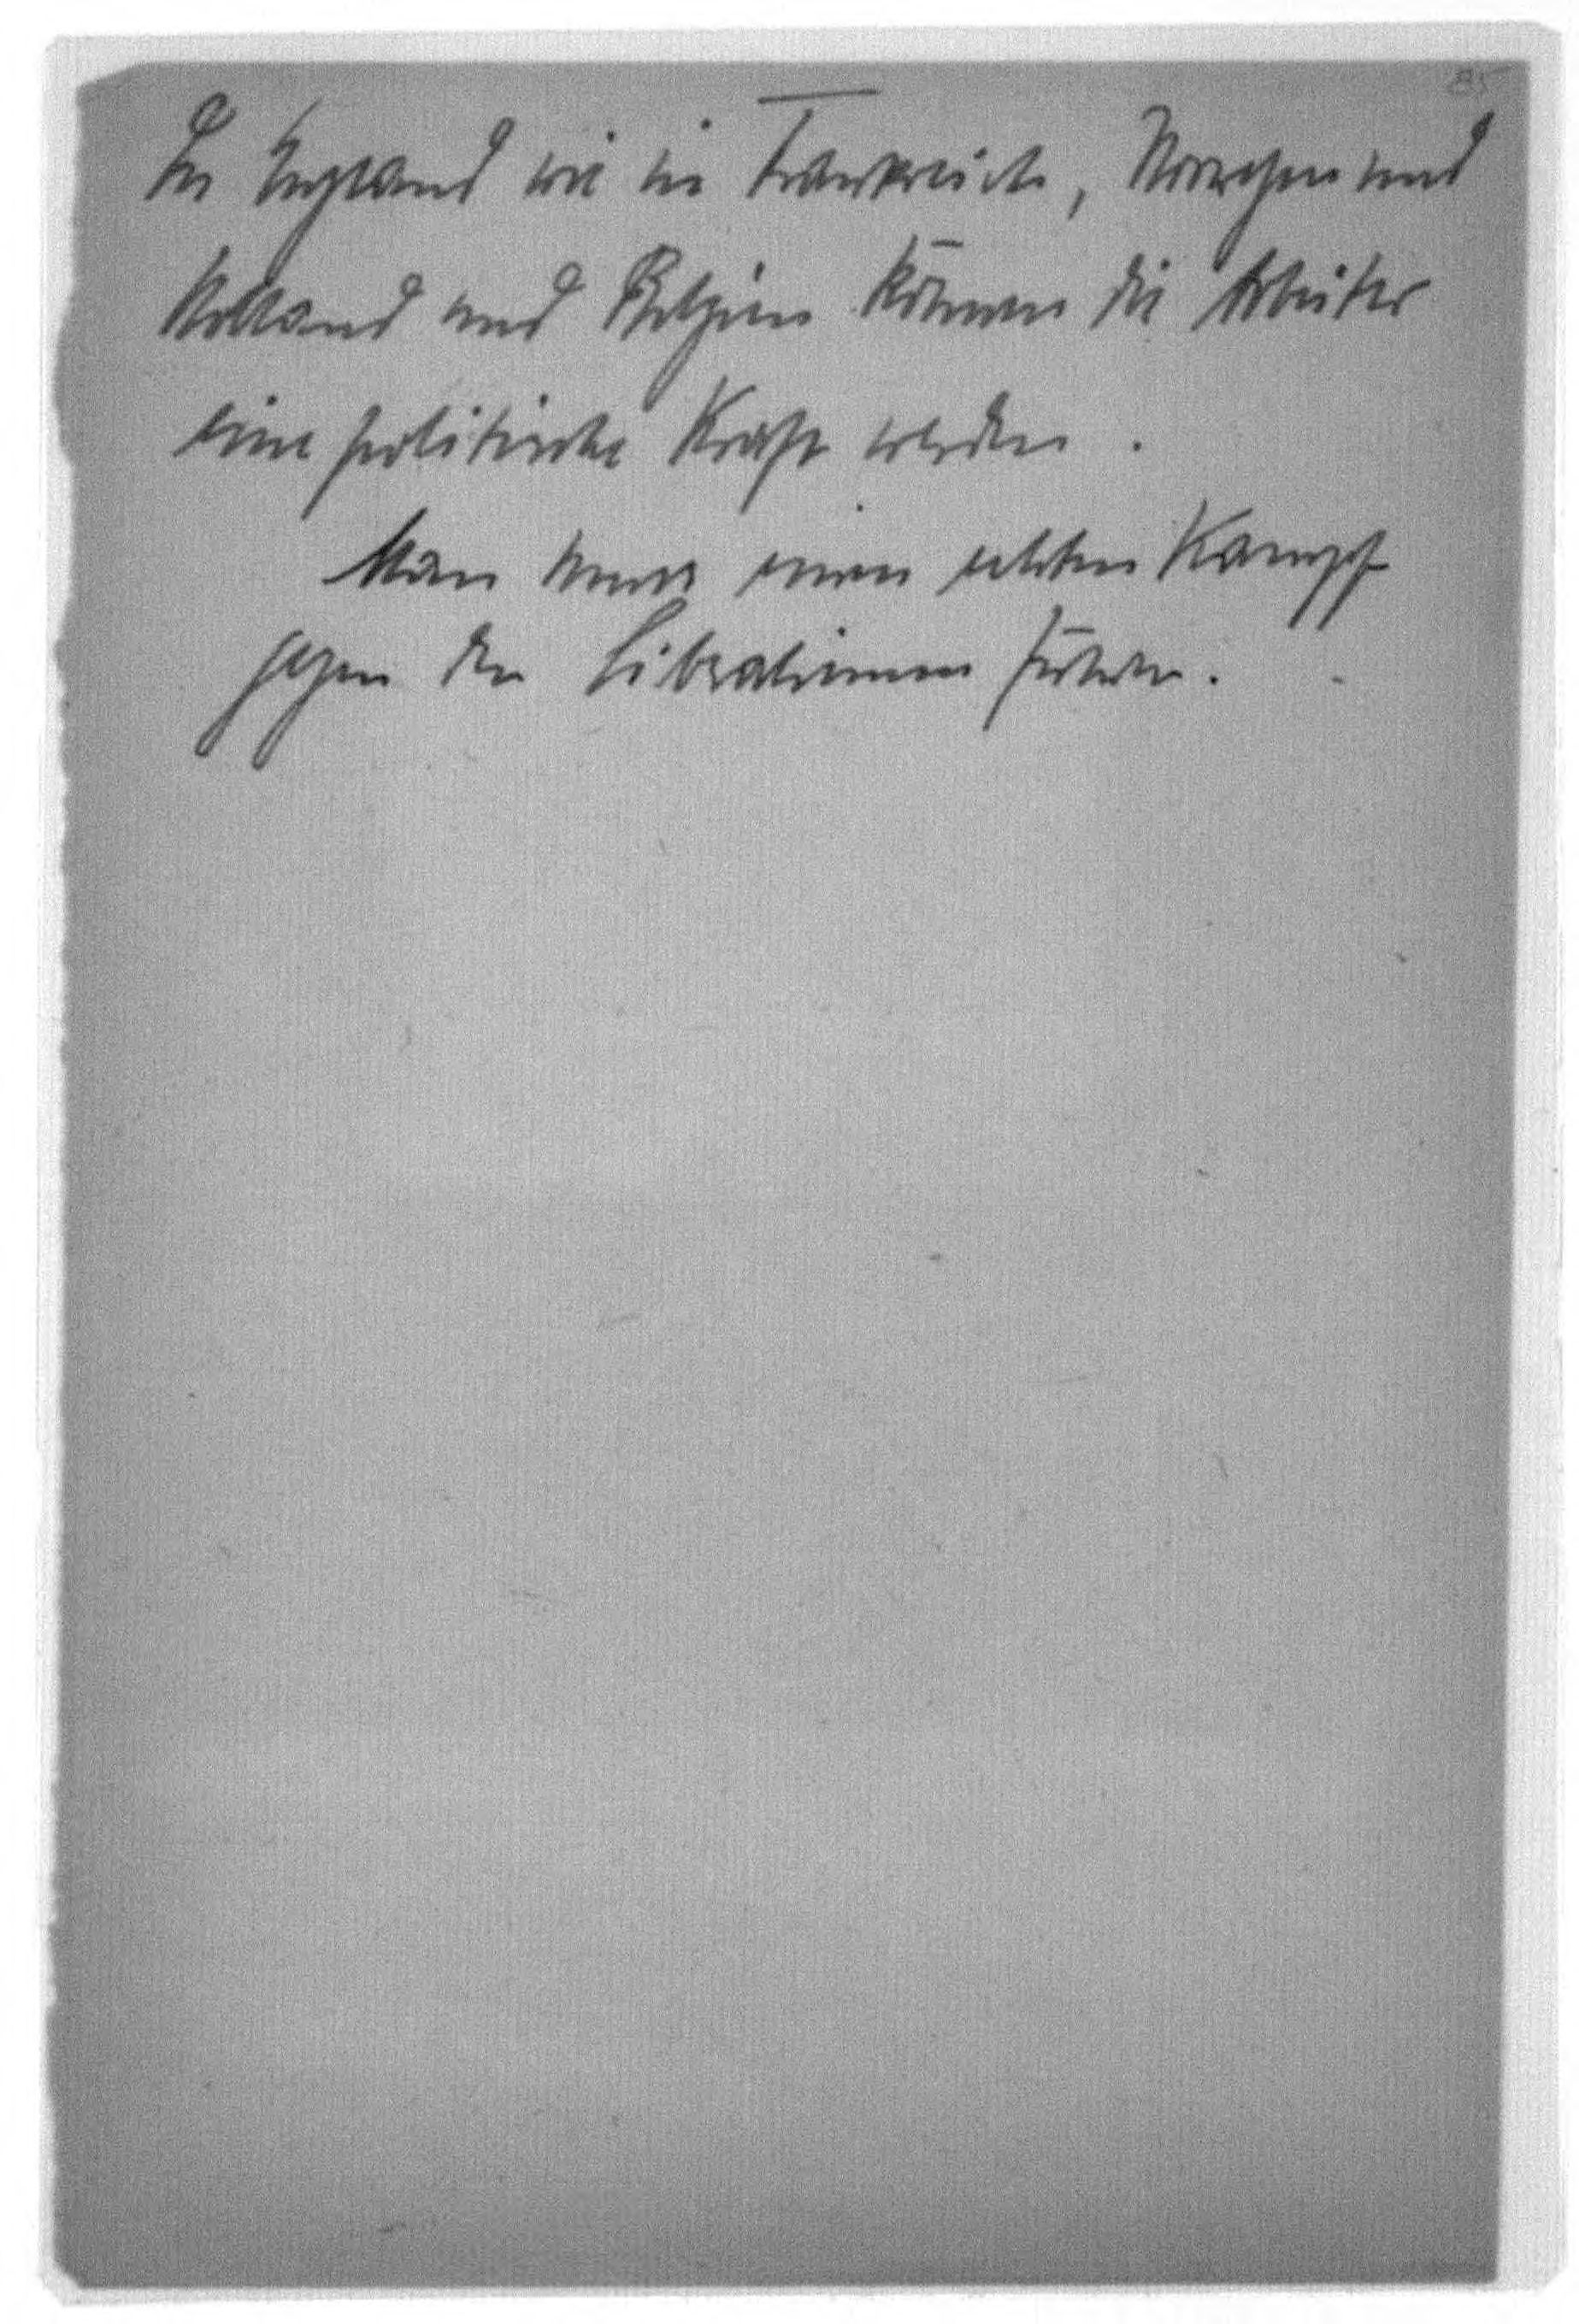 85
In England wie in Frankreich, Norwegen und
Holland und Belgien können die Arbeiter
eine politische Kraft werden.
Man muss einen echten Kampf
gegen den Liberalismus führen.